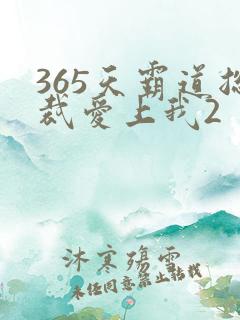 365天霸道总
裁爱上我2
沐寒殇雪
未经同意禁止转载